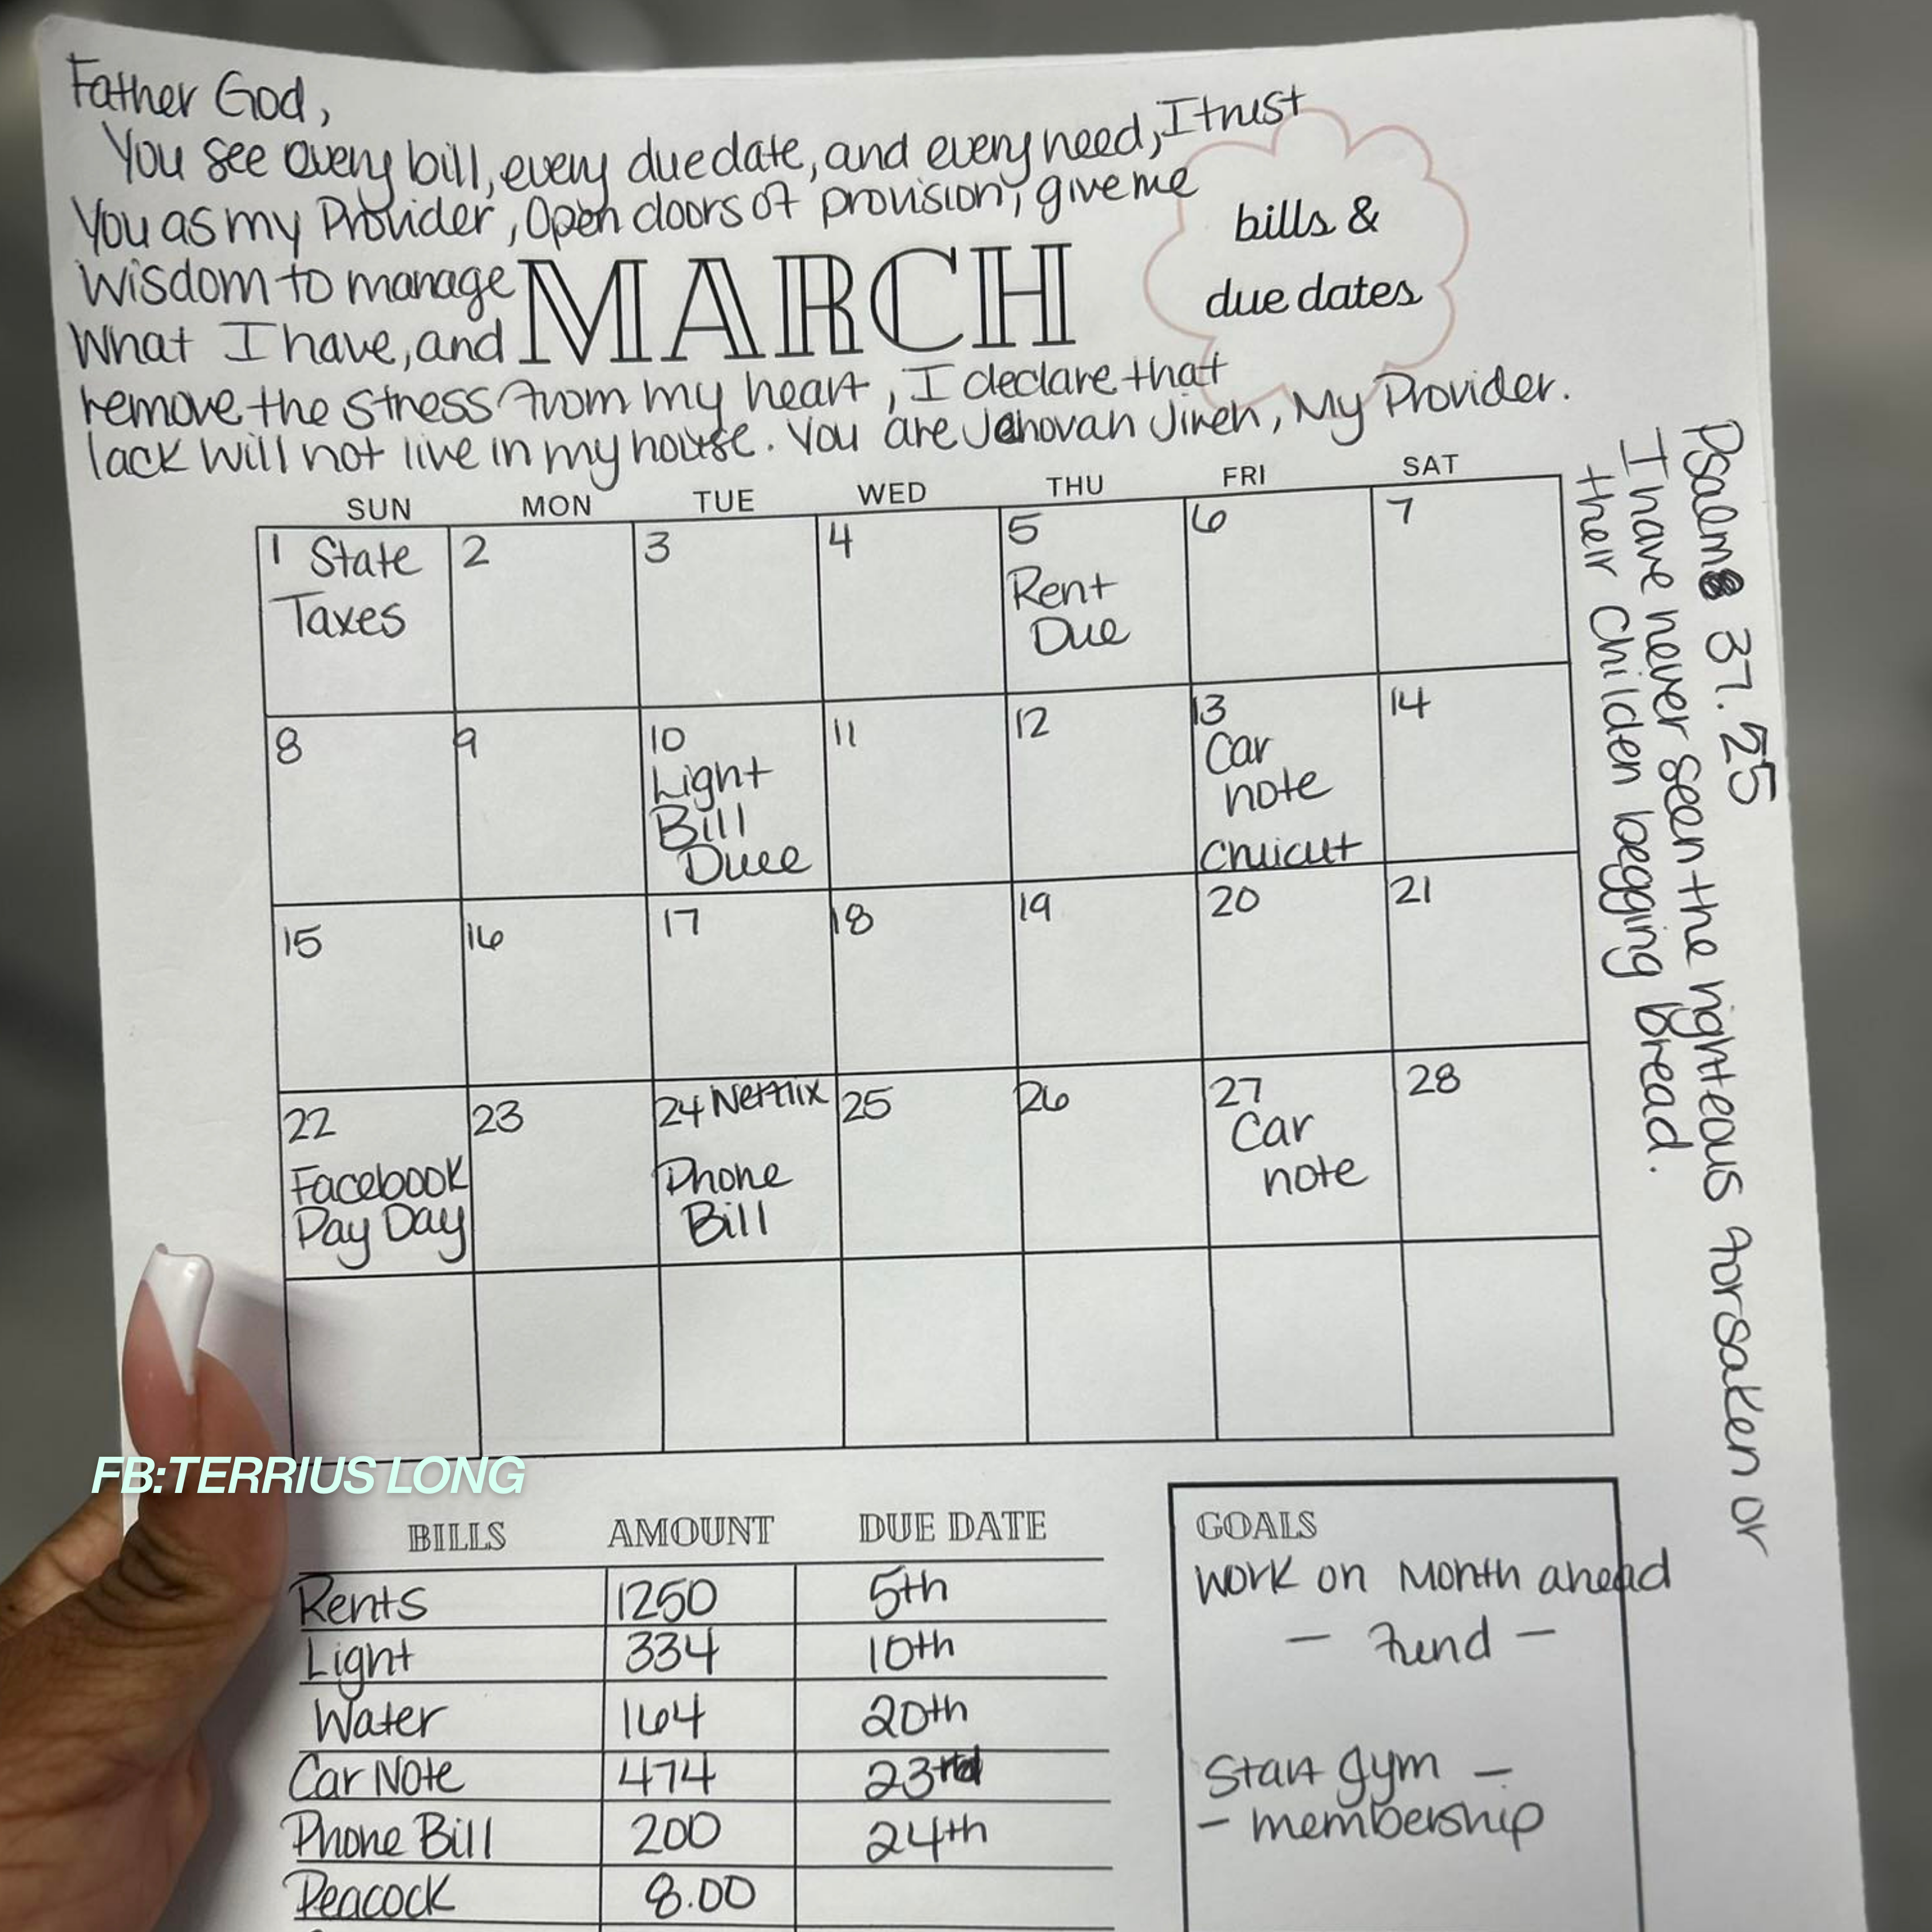 Father God,
You see every bill, every due date, and every need, I trust
You as my Provider, Open doors of provision, give me
Wisdom to manage
What I have, and
MARCH
bills &
due dates
remove the stress from my heart, I declare that
lack will not live in my house. You are Jehovah Jireh, My Provider.
Psalm 37.25
I have never seen the righteous forsaken or
their children begging bread.
SUN MON TUE WED THU FRI SAT
1 State Taxes
2
3
4
5 Rent Due
6
7
8
9
10 Light Bill Due
11
12
13 Car note
14
15
16
17
18
19
20
21
22 Facebook Pay Day
23
24 Netflix Phone Bill
25
26
27 Car note
28
FB:TERRIUS LONG
BILLS AMOUNT DUE DATE
Rents 1250 5th
Light 334 10th
Water 164 20th
Car Note 474 23rd
Phone Bill 200 24th
Peacock 8.00
GOALS
Work on Month ahead
- Fund -
Start gym -
- membership